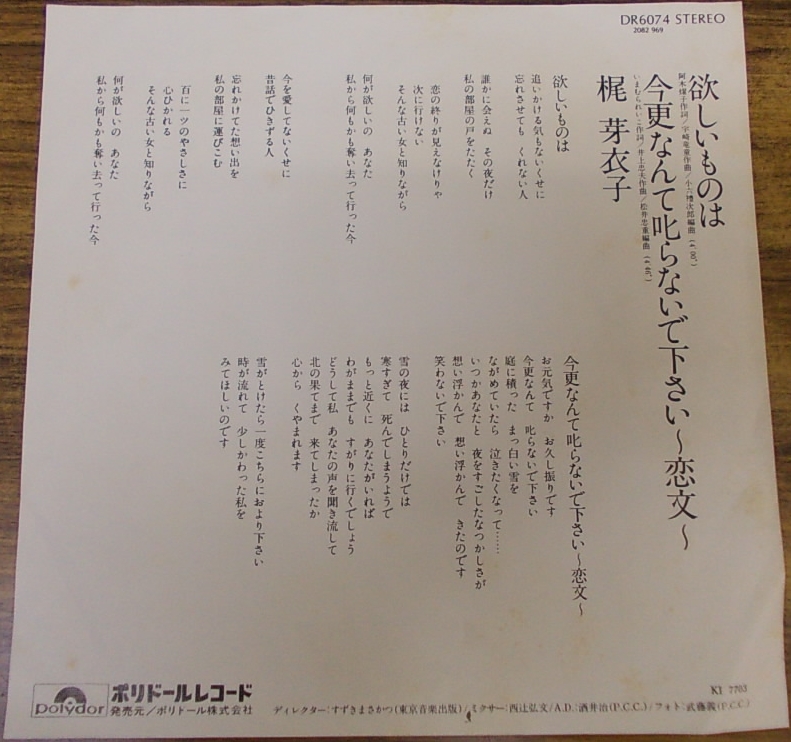 DR6074 STEREO
2082 969
欲しいものは
阿木燿子作詞/宇崎竜童作曲/小六禮次郎編曲
今更なんて叱らないで下さい〜恋文〜
いまむられいこ作詞/井上忠夫作曲/松井忠重編曲
梶 芽衣子
欲しいものは
追いかける気もないくせに
忘れさせても くれない人
誰かに会えぬ その夜だけ
私の部屋の戸をたたく
恋の終りが見えなけりゃ
次に行けない
そんな古い女と知りながら
何が欲しいの あなた
私から何もかも奪い去って行った今
今を愛してないくせに
昔話でひきずる人
忘れかけてた想い出を
私の部屋に運びこむ
百に一ツのやさしさに
心ひかれる
そんな古い女と知りながら
何が欲しいの あなた
私から何もかも奪い去って行った今
今更なんて叱らないで下さい〜恋文〜
お元気ですか お久し振りです
今更なんて 叱らないで下さい
庭に積った まっ白い雪を
ながめていたら 泣きたくなって……
いつかあなたと 夜をすごしたなつかしさが
想い浮かんで 想い浮かんで きたのです
笑わないで下さい
雪の夜には ひとりだけでは
寒すぎて 死んでしまうようで
もっと近くに あなたがいれば
わがままでも すがりに行くでしょう
どうして私 あなたの声を聞き流して
北の果てまで 来てしまったか
心から くやまれます
雪がとけたら一度こちらにおより下さい
時が流れて 少しかわった私を
みてほしいのです
KI 7703
polydor
ポリドールレコード
発売元/ポリドール株式会社
ディレクター:すずきまさかつ(東京音楽出版)/ミクサー:西辻弘文/A.D.:酒井治(P.C.C.)/フォト:武藤義(P.C.C)